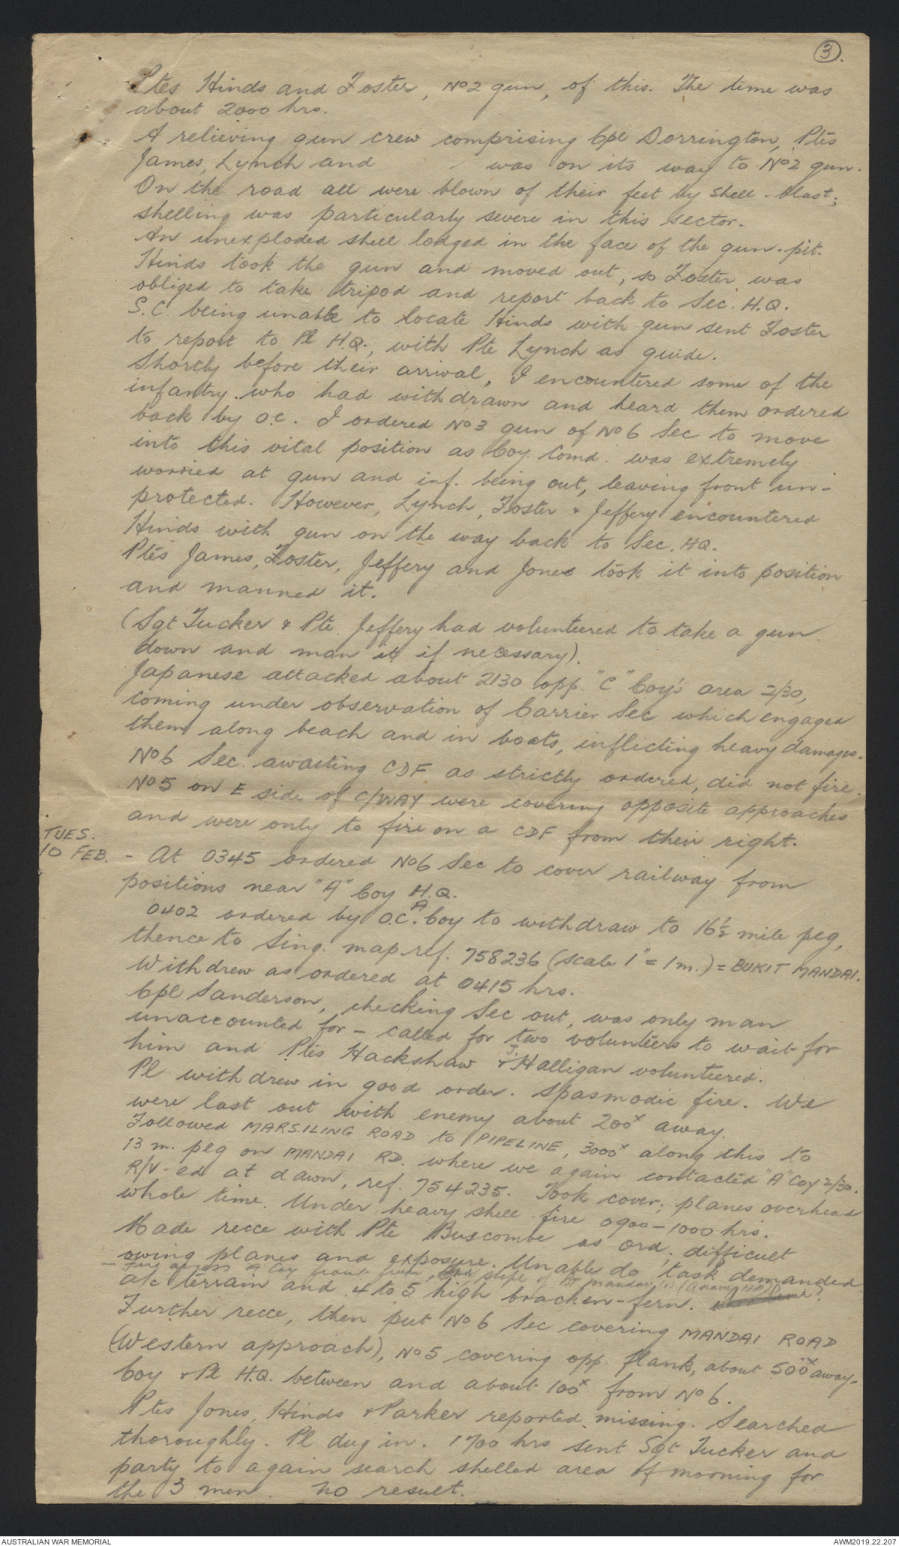 3.
Ptes Hinds and Foster, No2 gun, of this. The time was
about 2000 hrs.
A relieving gun crew comprising Cpl Dorrington, Ptes
James, Lynch and was on its way to No2 gun.
On the road all were blown of their feet by shell-blast;
shelling was particularly severe in this sector.
An unexploded shell lodged in the face of the gun-pit.
Hinds took the gun and moved out, so Foster was
obliged to take tripod and report back to Sec. H.Q.
S.C. being unable to locate Hinds with gun sent Foster
to report to Pl HQ., with Pte Lynch as guide.
Shortly before their arrival, I encountered some of the
infantry who had withdrawn and heard them ordered
back by O.C. I ordered No3 gun of No6 Sec to move
into this vital position as Coy Comd. was extremely
worried at gun and inf. being out, leaving front un-
protected. However, Lynch, Foster & Jeffery encountered
Hinds with gun on the way back to Sec. HQ.
Ptes James, Foster, Jeffery and Jones took it into position
and manned it.
(Sgt Tucker & Pte Jeffery had volunteered to take a gun
down and man it if necessary).
Japanese attacked about 2130 opp. "C" Coy's area 2/30,
coming under observation of Carrier Sec which engaged
them along beach and in boats, inflicting heavy damages.
No6 Sec. awaiting CDF as strictly ordered, did not fire.
No5 on E side of C/WAY were covering opposite approaches
and were only to fire on a CDF from their right.
TUES.
10 FEB.
- At 0345 ordered No6 Sec to cover railway from
positions near "A" Coy H.Q.
0402 ordered by O.C. A Coy to withdraw to 16½ mile peg,
thence to Sing. map ref. 758236 (scale 1" = 1m.) = BUKIT MANDAI.
Withdrew as ordered at 0415 hrs.
Cpl Sanderson, checking Sec out, was only man
unaccounted for - called for two volunteers to wait for
him and Ptes Hackshaw & J. Halligan volunteered.
Pl withdrew in good order. Spasmodic fire. We
were last out with enemy about 200x away.
Followed MARSILING ROAD to PIPELINE, 3000x along this to
13 m. peg on MANDAI RD. where we again contacted "A" Coy 2/30.
R/V-ed at dawn, ref. 754235. Took cover; planes overhead
whole time. Under heavy shell fire 0900-1000 hrs.
Made recce with Pte Buscombe as ord; difficult
owing planes and exposure. Unable do task demanded
a/c terrain and 4 to 5 high bracken-fern.
Further recce, then put No6 Sec covering MANDAI ROAD
(Western approach), No5 covering opp. flank, about 500x away.
Coy & Pl H.Q. between and about 100x from No6.
Ptes Jones, Hinds & Parker reported missing. Searched
thoroughly. Pl dug in. 1700 hrs sent Sgt Tucker and
party to again search shelled area of morning for
the 3 men. No result.
AUSTRALIAN WAR MEMORIAL
AWM2019.22.207